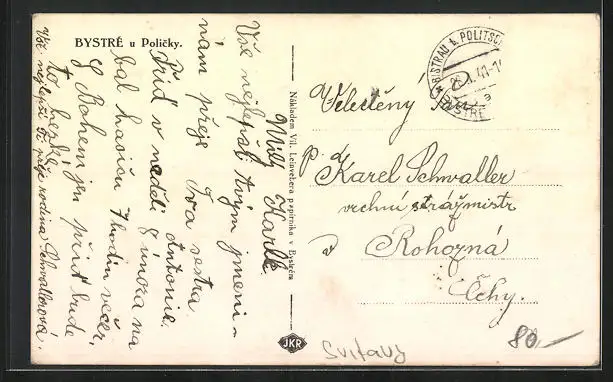 BYSTRÉ u Poličky.
Milý Karle
Vše nejlepší k tvým jmeni-
nám přeje Tva sestra
Antonie.
Přiď v neděli 9 února na
bal hasiču 7 hodin večer,
S Bohem jen přiď bude
to hezké
Vše nejlepší Ti přeje rodina Schwallerova.
Nákladem Vil. Leinvebera papírníka v Bystrém
JKR
BISTRAU b. POLITSCH
BYSTRÉ
a
Velectěný pan
p. d.
Karel Schwaller
vrchní strážmistr
Rohozná
Čechy.
Svitavy
80.-